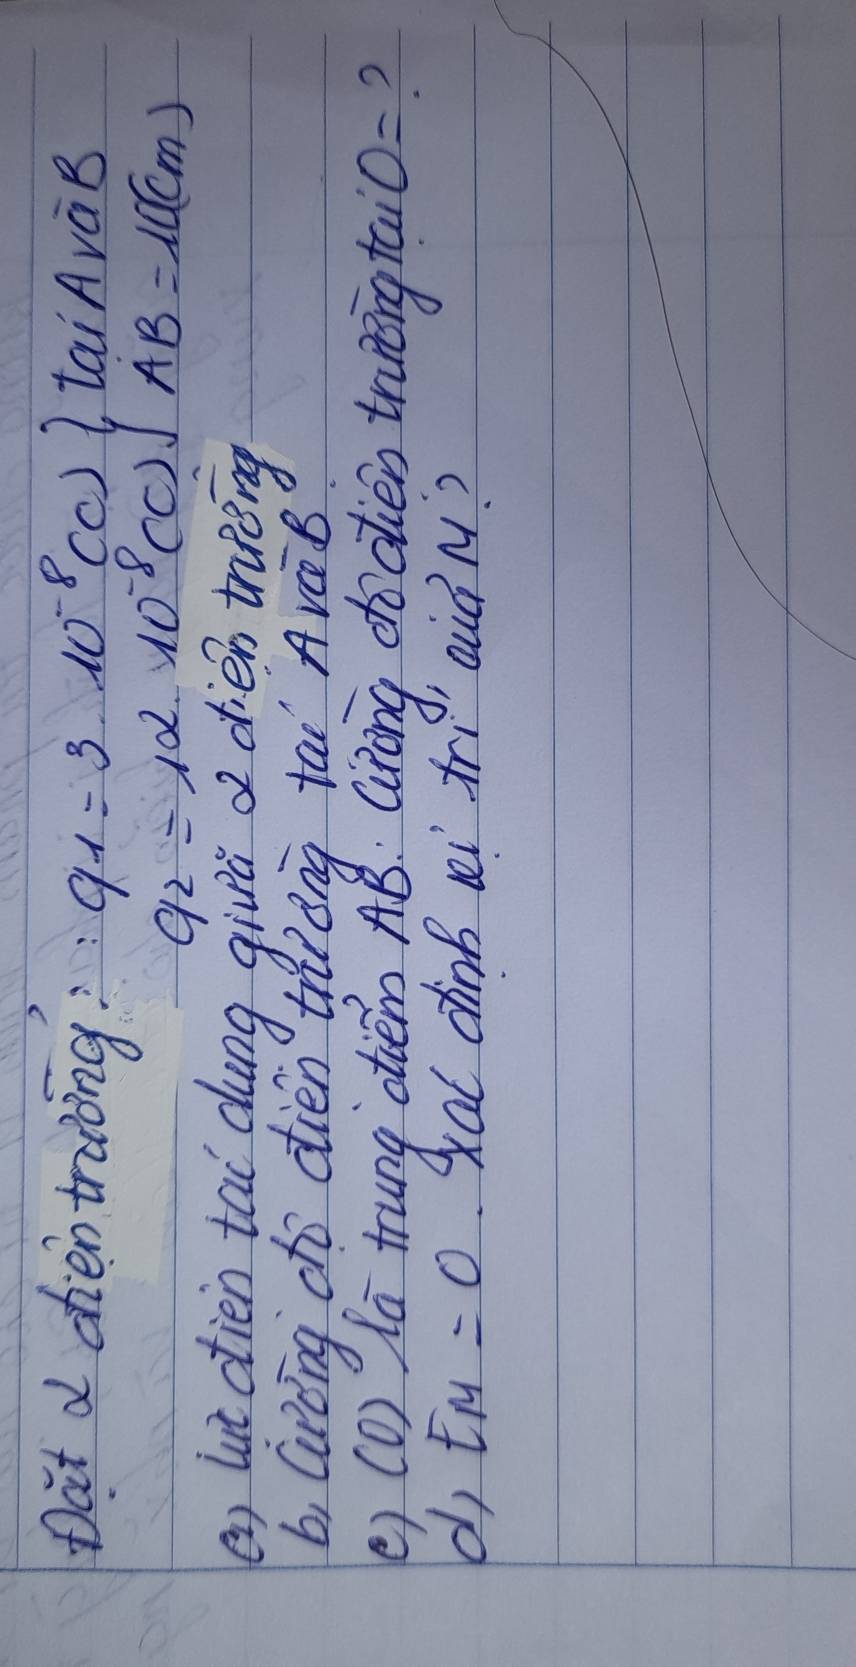 Đặt 2 điện trường: q1 = 3.10⁻⁸ (C) } tại A và B
q2 = 12.10⁻⁸ (C) } AB = 10(cm)
a) lực điện tác dụng giữa 2 điện trường
b, Cường độ điện trường tại A và B
c) (O) là trung điểm AB. Cường độ điện trường tại O = ?
d, EM = 0. Xác định vị trí của M?